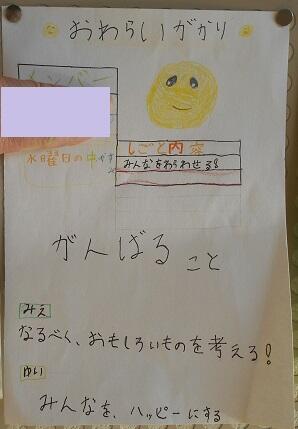 おわらいがかり
メンバー
水曜日の中やすみ
しごと内容
みんなをわらわせる!
がんばること
みえ
なるべく、おもしろいものを考える!
ゆい
みんなを、ハッピーにする